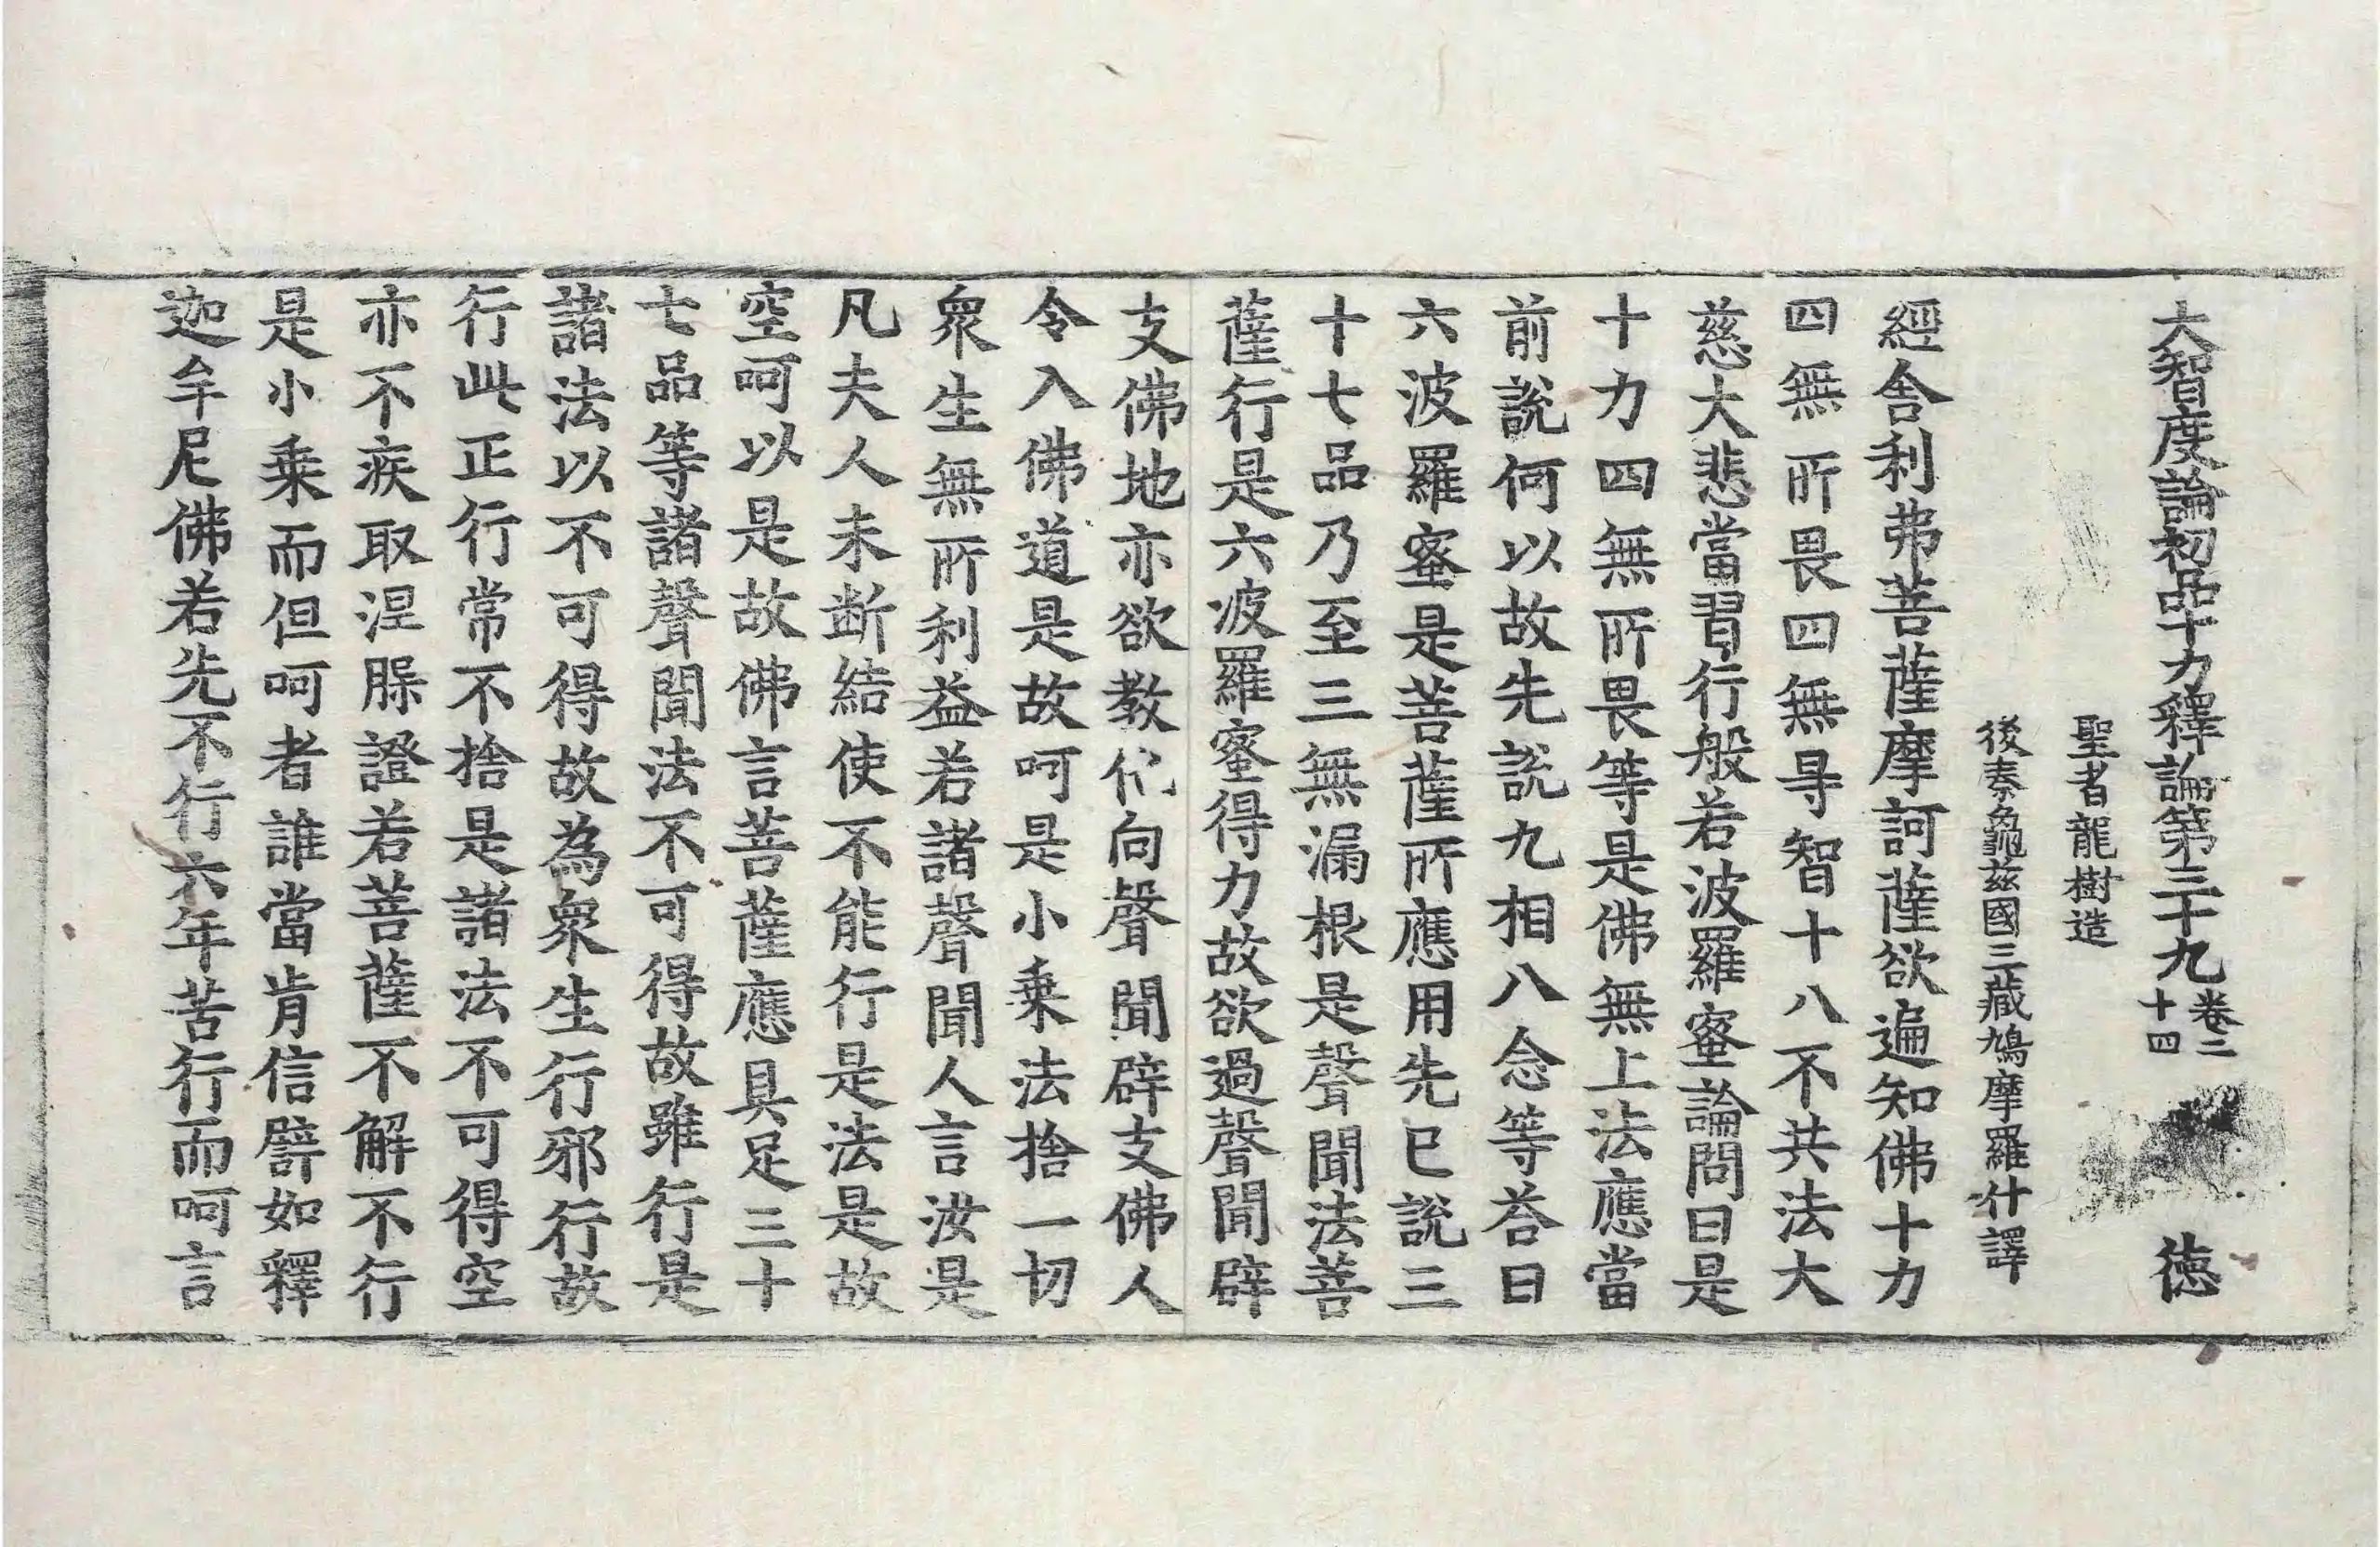 大智度論初品中十力釋論第三十九卷二十四　德
聖者龍樹造
後秦龜茲國三藏鳩摩羅什譯
經舍利弗菩薩摩訶薩欲遍知佛十力
四無所畏四無㝵智十八不共法大
慈大悲當習行般若波羅蜜論問曰是
十力四無所畏等是佛無上法應當
前說何以故先說九相八念等荅曰
六波羅蜜是菩薩所應用先已說三
十七品乃至三無漏根是聲聞法菩
薩行是六波羅蜜得力故欲過聲聞辟
支佛地亦欲教化向聲聞辟支佛人
令入佛道是故呵是小乗法捨一切
衆生無所利益若諸聲聞人言汝是
凡夫人未断結使不能行是法是故
空呵以是故佛言菩薩應具足三十
七品等諸聲聞法不可得故雖行是
諸法以不可得故為衆生行邪行故
行此正行常不捨是諸法不可得空
亦不疾取涅槃證若菩薩不解不行
是小乗而但呵者誰當肯信譬如釋
迦牟尼佛若先不行六年苦行而呵言